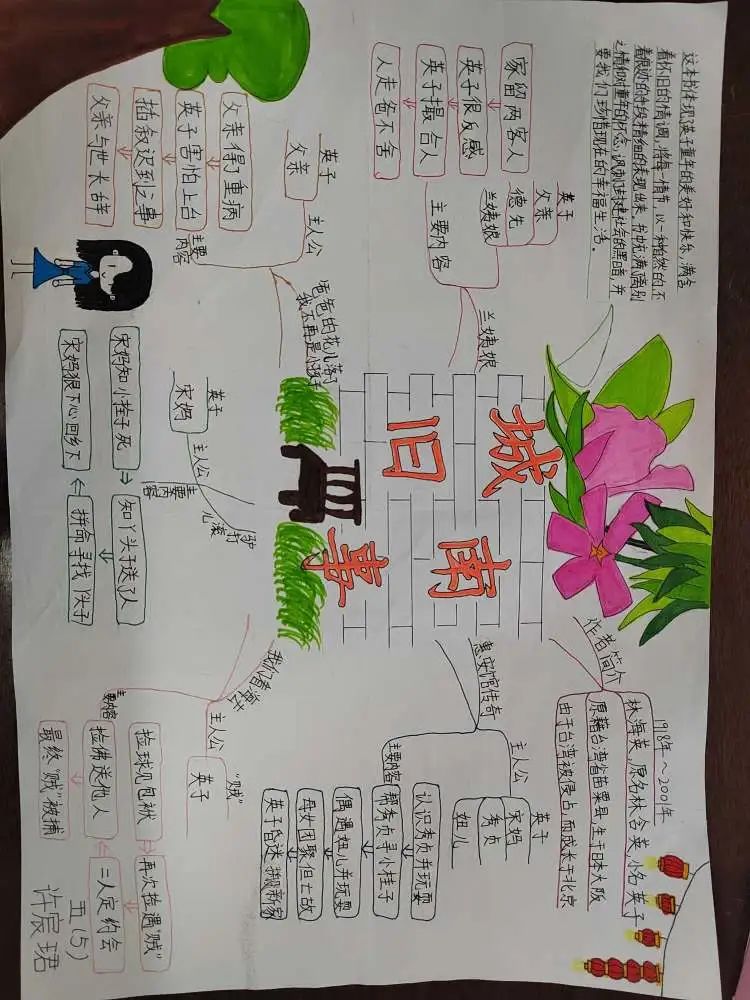 城南旧事
作者简介
1918年～2001年
林海英,原名林含英,小名英子
原籍台湾省苗栗县,生于日本大阪
由于台湾被侵占,而成长于北京
惠安馆传奇
主人公
英子
宋妈
秀贞
妞儿
主要内容
认识秀贞并玩耍
帮秀贞寻小桂子
偶遇妞儿并玩耍
母女团聚但亡故
英子昏迷搬新家
我们看海去
主人公
"贼"
英子
主要内容
捡球见包袱
再次捡遇"贼"
二人定约会
捡佛送他人
最终"贼"被捕
兰姨娘
英子
父亲
德先
兰姨娘
主要内容
家留两客人
英子很反感
英子撮合人
人走爸不舍
驴打滚儿
主人公
英子
宋妈
主要内容
宋妈知小拴子死
知丫头子送了人
拼命寻找丫头子
宋妈狠下心回乡下
爸爸的花儿落了
我不再是小孩子
主人公
英子
父亲
主要内容
父亲得了重病
英子害怕上台
插叙迟到之事
父亲与世长辞
这本书体现了英子童年的美好和快乐,满含
着怀旧的情调,将每一情节,以一种自然的不
着痕迹的手段精细的表现出来。书中充满了离别
之情和对童年的怀念,讽刺了封建社会的黑暗,并
要我们珍惜现在的幸福生活。
五(5)
许宸珺